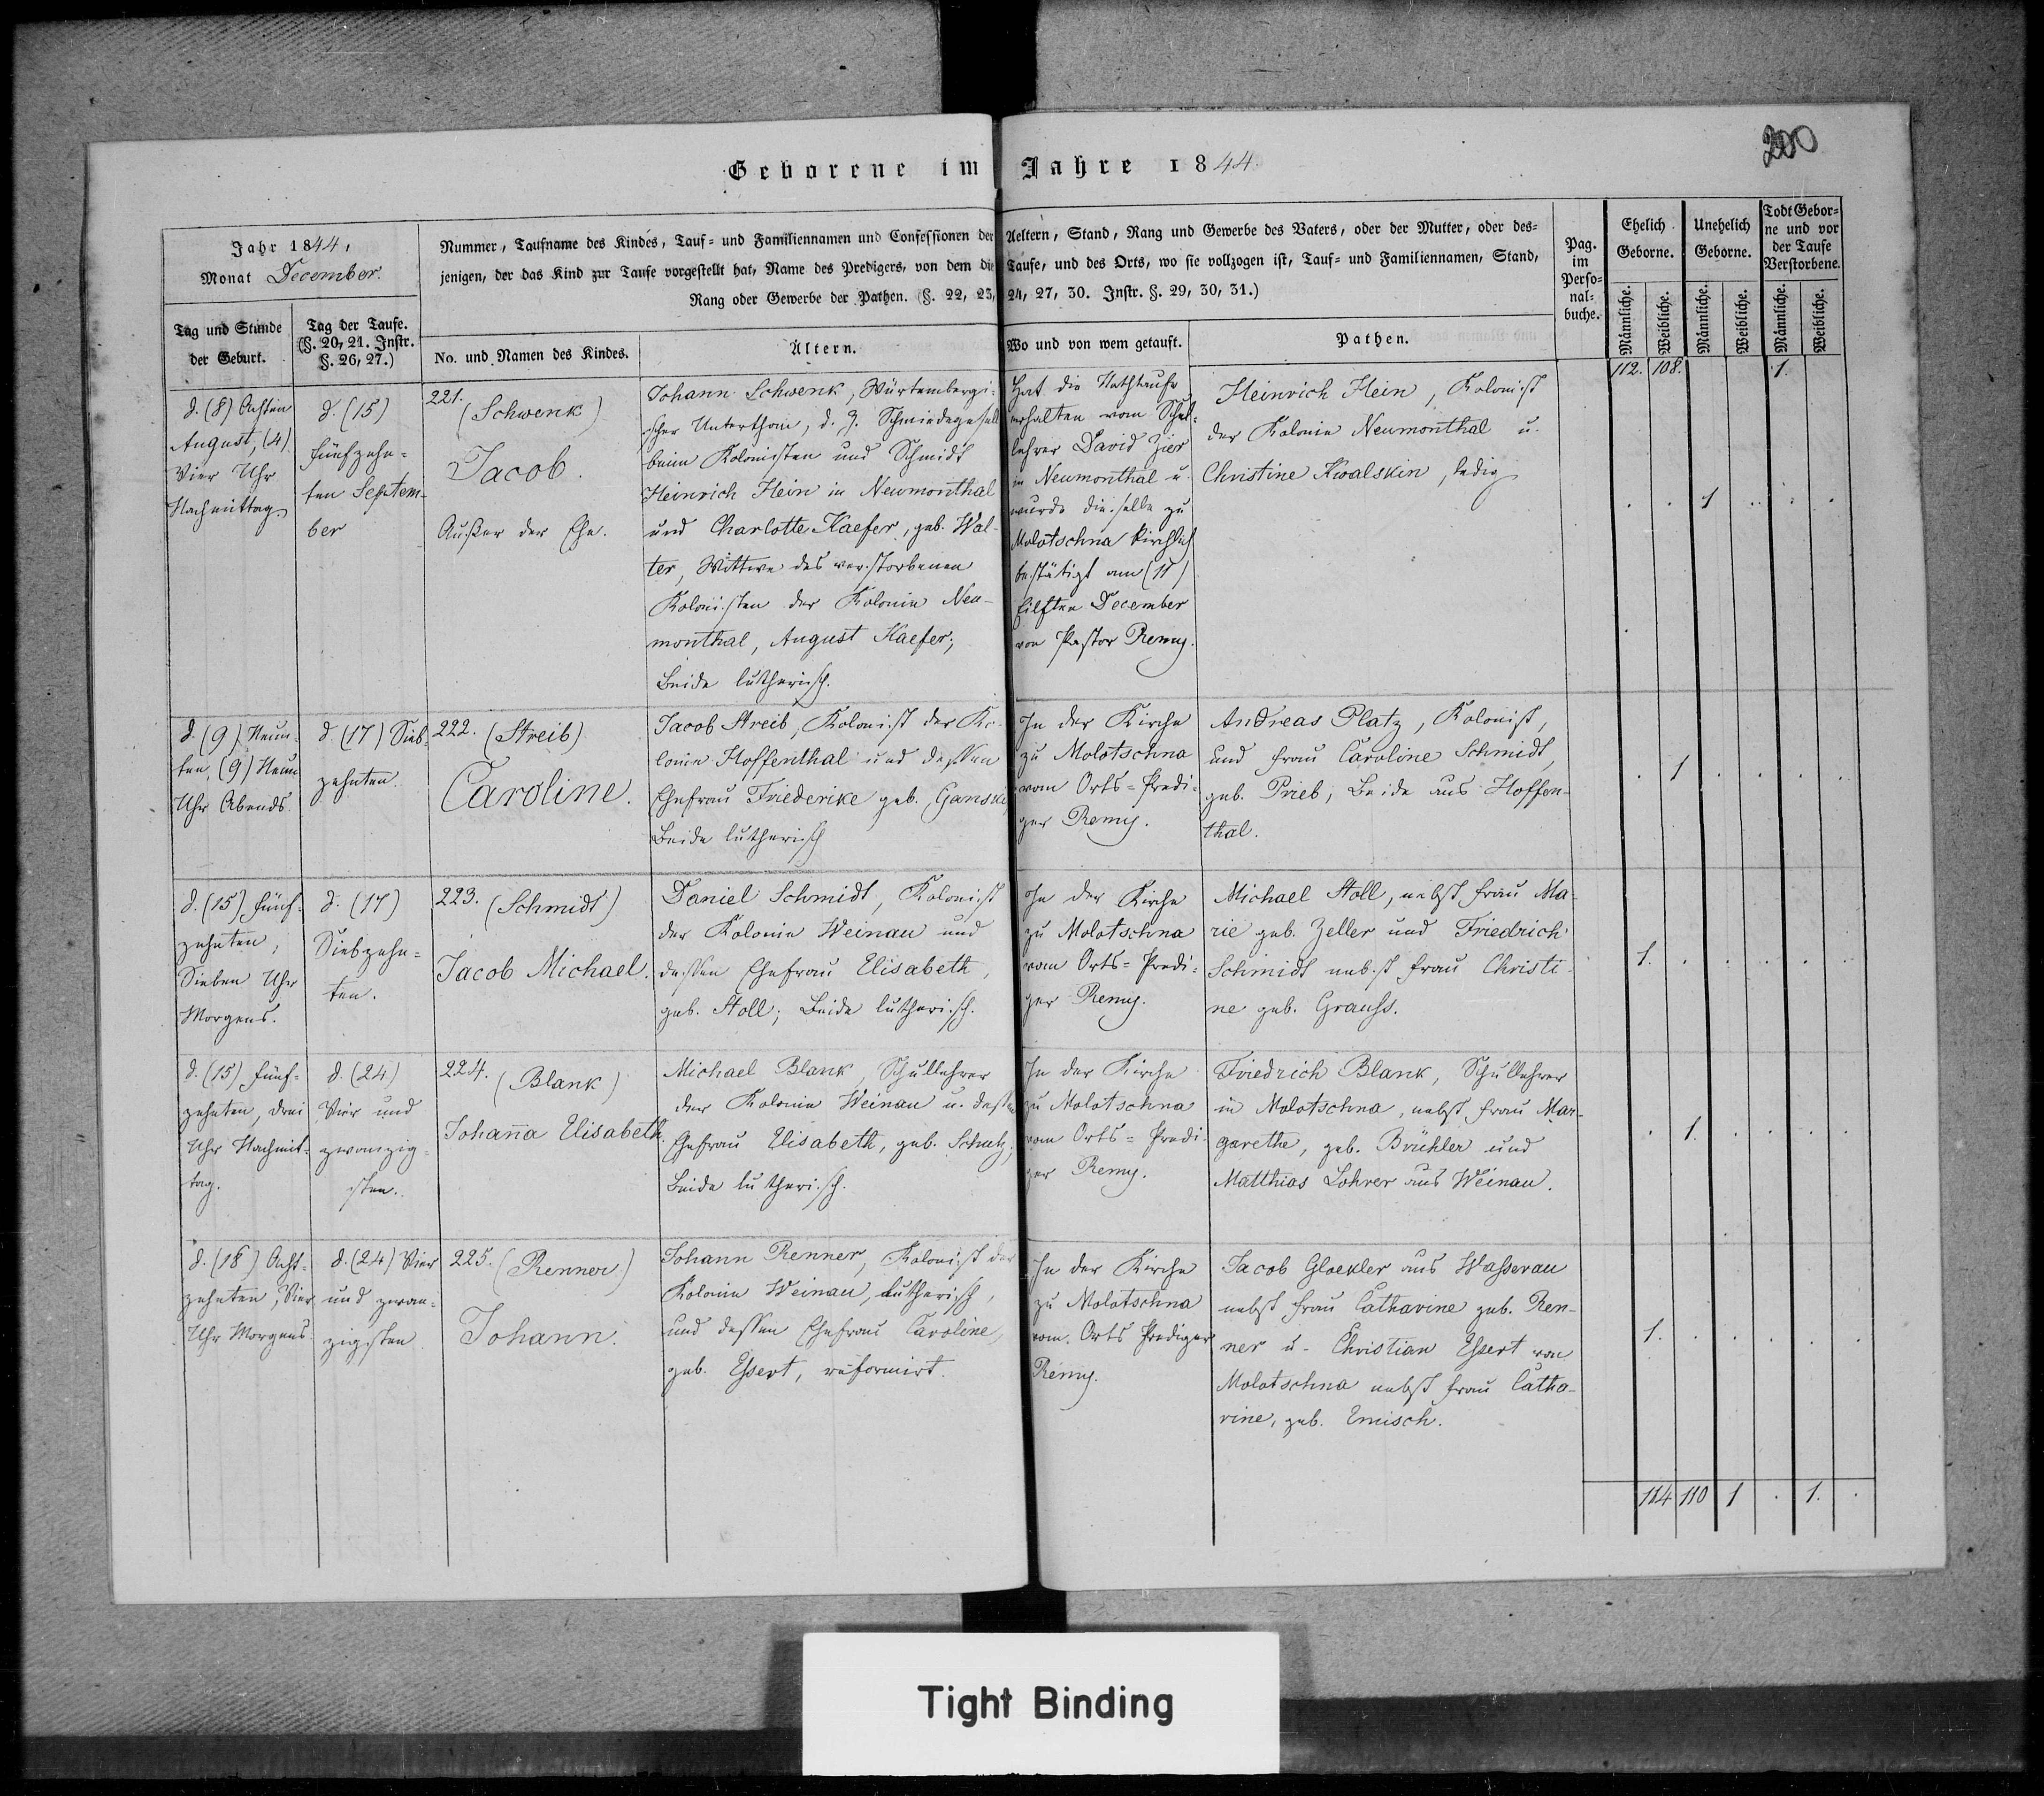 200
Geborene im Jahre 1844
Jahr 1844,
Monat December.
Nummer, Taufname des Kindes, Tauf- und Familiennamen und Confessionen der Aeltern, Stand, Rang und Gewerbe des Vaters, oder der Mutter, oder des-
jenigen, der das Kind zur Taufe vorgestellt hat, Name des Predigers, von dem die Taufe, und des Orts, wo sie vollzogen ist, Tauf- und Familiennamen, Stand,
Rang oder Gewerbe der Pathen. (§. 22, 23, 24, 27, 30. Instr. §. 29, 30, 31.)
Pag.
im
Perso-
nal-
buche.
Ehelich
Geborne.
Unehelich
Geborne.
Todt Gebor-
ne und vor
der Taufe
Verstorbene.
Tag und Stunde
der Geburt.
Tag der Taufe.
(§. 20, 21. Instr.
§. 26, 27.)
No. und Namen des Kindes.
Ältern.
Wo und von wem getauft.
Pathen.
Männliche.
Weibliche.
Männliche.
Weibliche.
Männliche.
Weibliche.
112. 108. 1.
d. (8) Achten
August, (4)
Vier Uhr
Nachmittag.
d. (15)
Fünfzehn-
ten Septem-
ber
221.
(Schwenk)
Jacob.
Außer der Ehe.
Johann Schwenk, Würtembergi-
scher Unterthan, d. Z. Schmiedegesell
beim Kolonisten und Schmidt
Heinrich Hein in Neumonthal
und Charlotte Kaefer, geb. Wal-
ter, Wittwe des verstorbenen
Kolonisten der Kolonie Neu-
monthal, August Kaefer;
Beide lutherisch.
Hat die Nothtaufe
erhalten vom Schul-
lehrer David Zier
in Neumonthal u.
wurde dieselbe zu
Molotschna kirchlich
bestätigt am (11)
Eilften December
von Pastor Remy.
Heinrich Hein, Kolonist
der Kolonie Neumonthal u.
Christine Kwalskin, ledig
. . 1 . . .
d. (9) Neun-
ten, (9) Neun
Uhr Abends.
d. (17) Sieb-
zehnten.
222. (Streib)
Caroline.
Jacob Streib, Kolonist der Ko-
lonie Hoffenthal und dessen
Ehefrau Friederike geb. Ganske,
Beide lutherisch
In der Kirche
zu Molotschna
vom Orts-Predi-
ger Remy.
Andreas Platz, Kolonist,
und Frau Caroline Schmidt,
geb. Prieb, Beide aus Hoffen-
thal.
. 1 . . . .
d. (15) Fünf-
zehnten,
Sieben Uhr
Morgens.
d. (17)
Siebzehn-
ten.
223. (Schmidt)
Jacob Michael.
Daniel Schmidt, Kolonist
der Kolonie Weinau und
dessen Ehefrau Elisabeth,
geb. Stoll; Beide lutherisch.
In der Kirche
zu Molotschna
vom Orts-Predi-
ger Remy.
Michael Stoll, nebst Frau Ma-
rie geb. Zeller und Friedrich
Schmidt nebst Frau Christi-
ne geb. Grauß.
1. . . . . .
d. (15) Fünf-
zehnten, Drei
Uhr Nachmit-
tag.
d. (24)
Vier und
zwanzig-
sten.
224. (Blank)
Johan̄a Elisabeth.
Michael Blank, Schullehrer
der Kolonie Weinau u. dessen
Ehefrau Elisabeth, geb. Schatz;
Beide lutherisch.
In der Kirche
zu Molotschna
vom Orts-Predi-
ger Remy.
Friedrich Blank, Schullehrer
in Molotschna, nebst Frau Mar-
garethe, geb. Brühler und
Matthias Lohrer aus Weinau.
. 1. . . . .
d. (18) Acht-
zehnten, Vier
Uhr Morgens
d. (24) Vier
und zwan-
zigsten
225. (Renner.)
Johann.
Johann Renner, Kolonist der
Kolonie Weinau, lutherisch,
und dessen Ehefrau Caroline,
geb. Essert, reformirt.
In der Kirche
zu Molotschna
vom Orts Prediger
Remy.
Jacob Gloekler aus Wasserau
nebst Frau Catharine geb. Ren-
ner u. Christian Essert von
Molotschna nebst Frau Catha-
rine, geb. Emisch.
1. . . . . .
114 110 1 . 1. .
Tight Binding